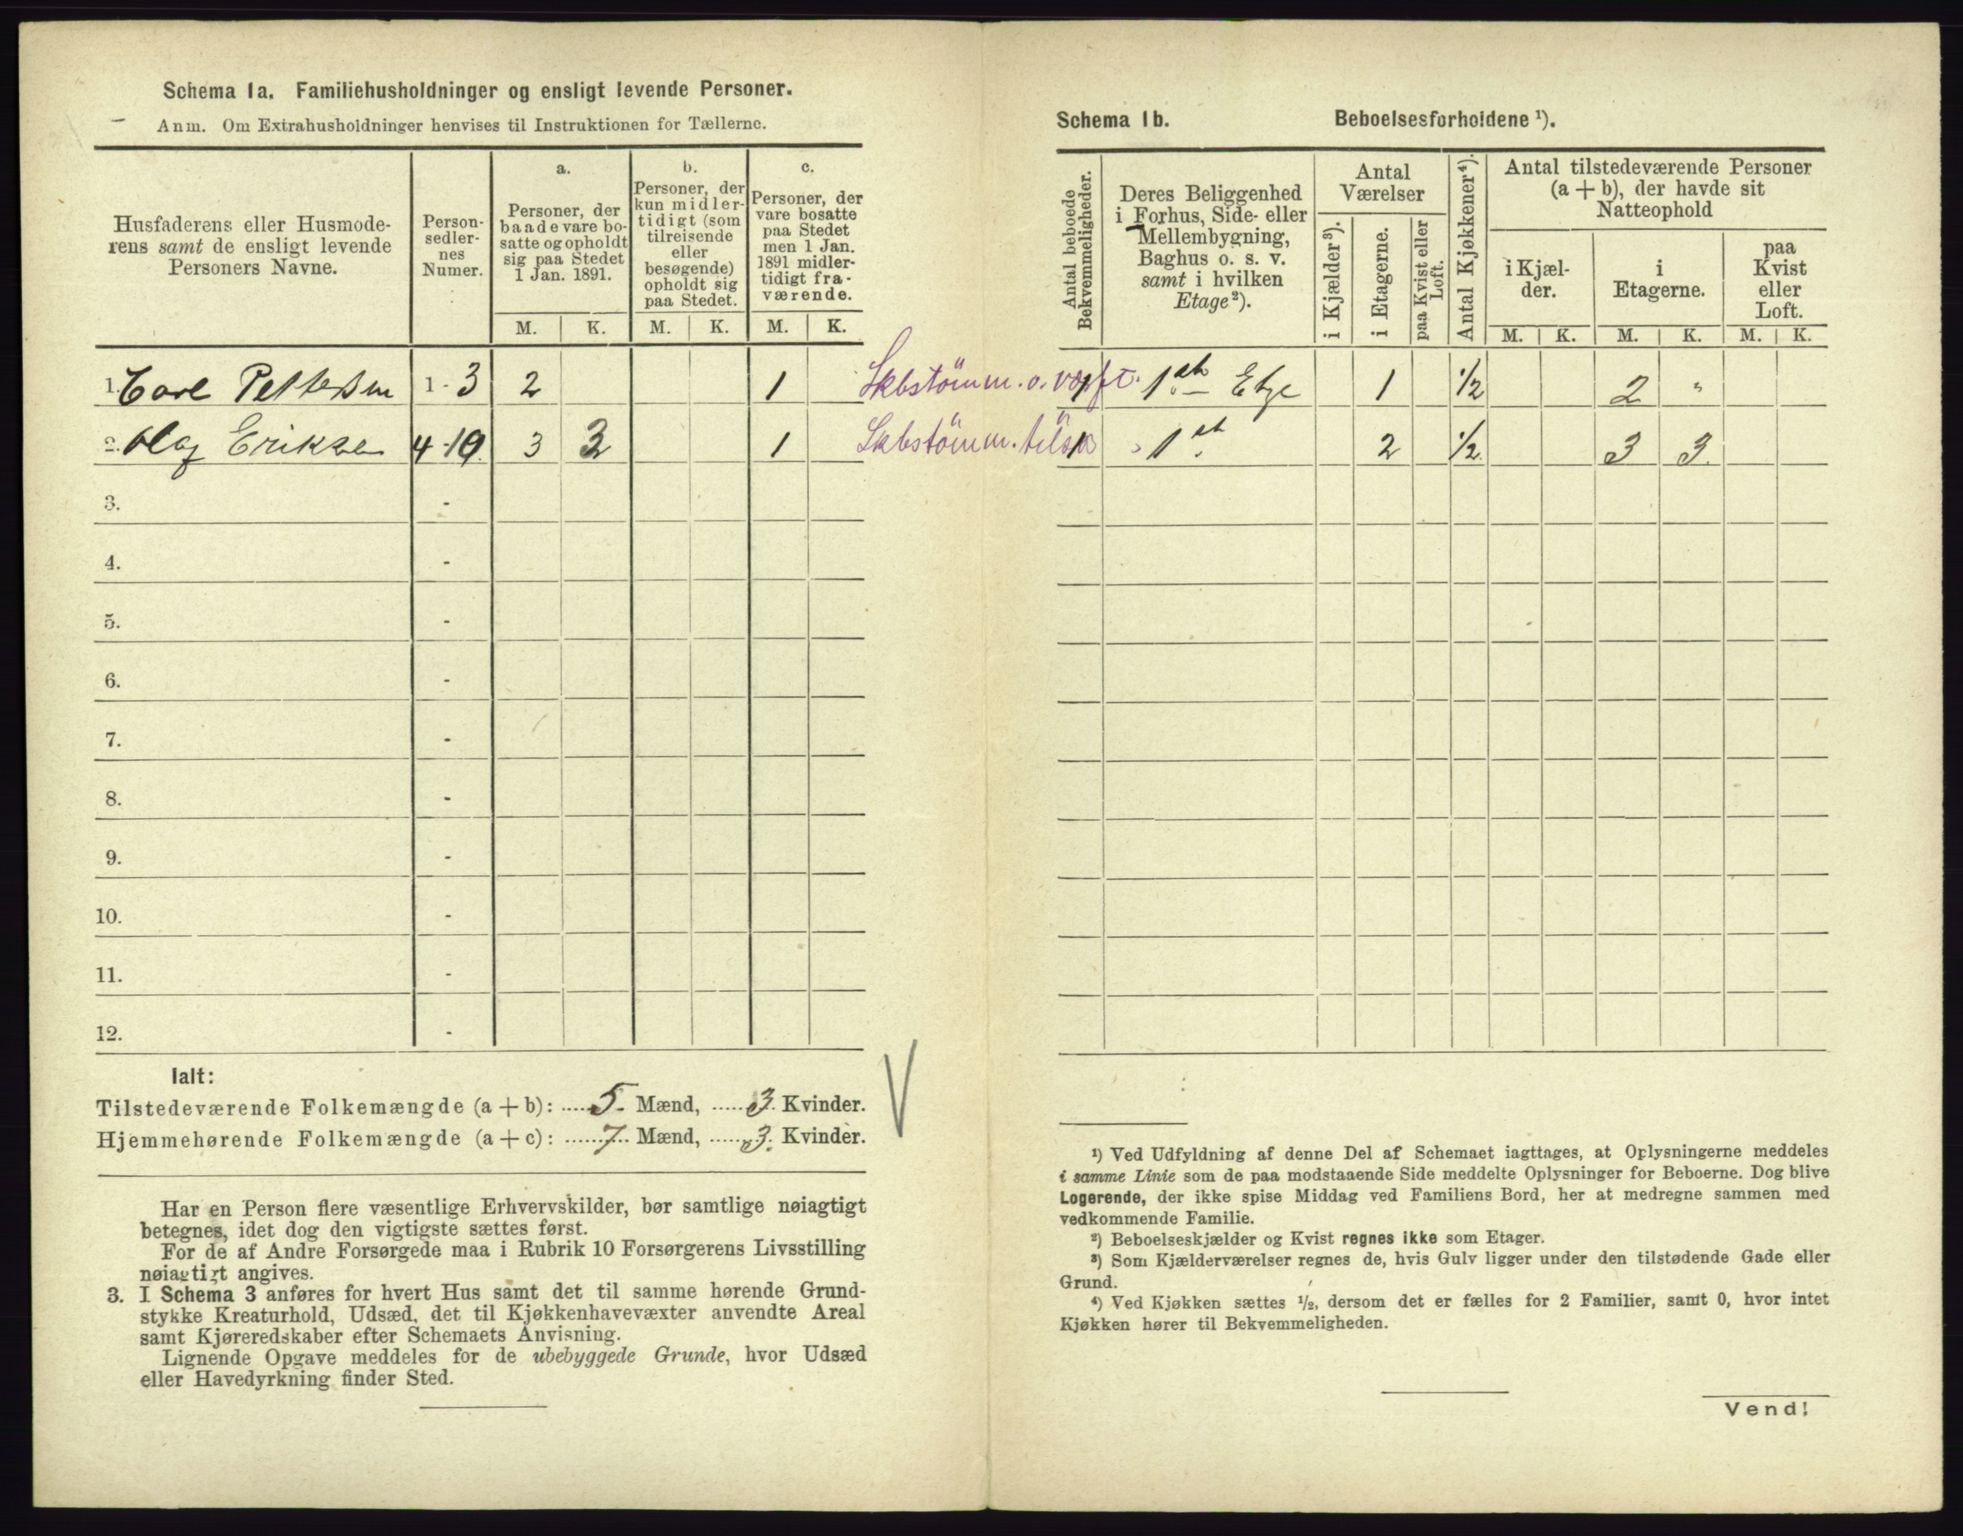 Schema 1a. Familiehusholdninger og ensligt levende Personer.
Anm. Om Extrahusholdninger henvises til Instruktionen for Tællerne.
Husfaderens eller Husmode-
rens samt de ensligt levende
Personers Navne.
Person-
sedler-
nes
Numer.
a.
Personer, der
baade vare bo-
satte og opholdt
sig paa Stedet
1 Jan. 1891.
b.
Personer, der
kun midler-
tidigt (som
tilreisende
eller
besøgende)
opholdt sig
paa Stedet.
c.
Personer, der
vare bosatte
paa Stedet
men 1 Jan.
1891 midler-
tidigt fra-
værende.
M. K. M. K. M. K.
1. Carl Pettersen 1 - 3 2 1 Skbstömm. o.
2. Olaf Eriksen 4 - 10 3 3 1 Skbstömm.
3. -
4. -
5. -
6. -
7. -
8. -
9. -
10. -
11. -
12. -
Ialt:
Tilstedeværende Folkemængde (a + b): 5 Mænd, 3 Kvinder.
Hjemmehørende Folkemængde (a + c): 7 Mænd, 3 Kvinder.
Har en Person flere væsentlige Erhvervskilder, bør samtlige nøiagtigt
betegnes, idet dog den vigtigste sættes først.
For de af Andre Forsørgede maa i Rubrik 10 Forsørgerens Livsstilling
nøiagtigt angives.
3. I Schema 3 anføres for hvert Hus samt det til samme hørende Grund-
stykke Kreaturhold, Udsæd, det til Kjøkkenhavevæxter anvendte Areal
samt Kjøreredskaber efter Schemaets Anvisning.
Lignende Opgave meddeles for de ubebyggede Grunde, hvor Udsæd
eller Havedyrkning finder Sted.
Schema 1b. Beboelsesforholdene ¹).
Antal beboede
Bekvemmeligheder.
Deres Beliggenhed
i Forhus, Side- eller
Mellembygning,
Baghus o. s. v.
samt i hvilken
Etage²).
Antal
Værelser
i Kjælder³).
i Etagerne.
paa Kvist eller
Loft.
Antal Kjøkkener⁴).
Antal tilstedeværende Personer
(a + b), der havde sit
Natteophold
i Kjæl-
der.
i
Etagerne.
paa
Kvist
eller
Loft.
M. K. M. K. M. K.
1 1ste Etge 1 1/2 2 "
1 " 1ste 2 1/2 3 3
¹) Ved Udfyldning af denne Del af Schemaet iagttages, at Oplysningerne meddeles
i samme Linie som de paa modstaaende Side meddelte Oplysninger for Beboerne. Dog blive
Logerende, der ikke spise Middag ved Familiens Bord, her at medregne sammen med
vedkommende Familie.
²) Beboelseskjælder og Kvist regnes ikke som Etager.
³) Som Kjælderværelser regnes de, hvis Gulv ligger under den tilstødende Gade eller
Grund.
⁴) Ved Kjøkken sættes ¹/₂, dersom det er fælles for 2 Familier, samt 0, hvor intet
Kjøkken hører til Bekvemmeligheden.
Vend!